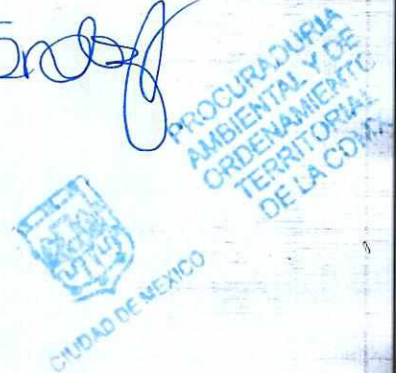 PROCURADURIA
AMBIENTAL Y DE
ORDENAMIENTO
TERRITORIAL
DE LA CDMX
CIUDAD DE MEXICO